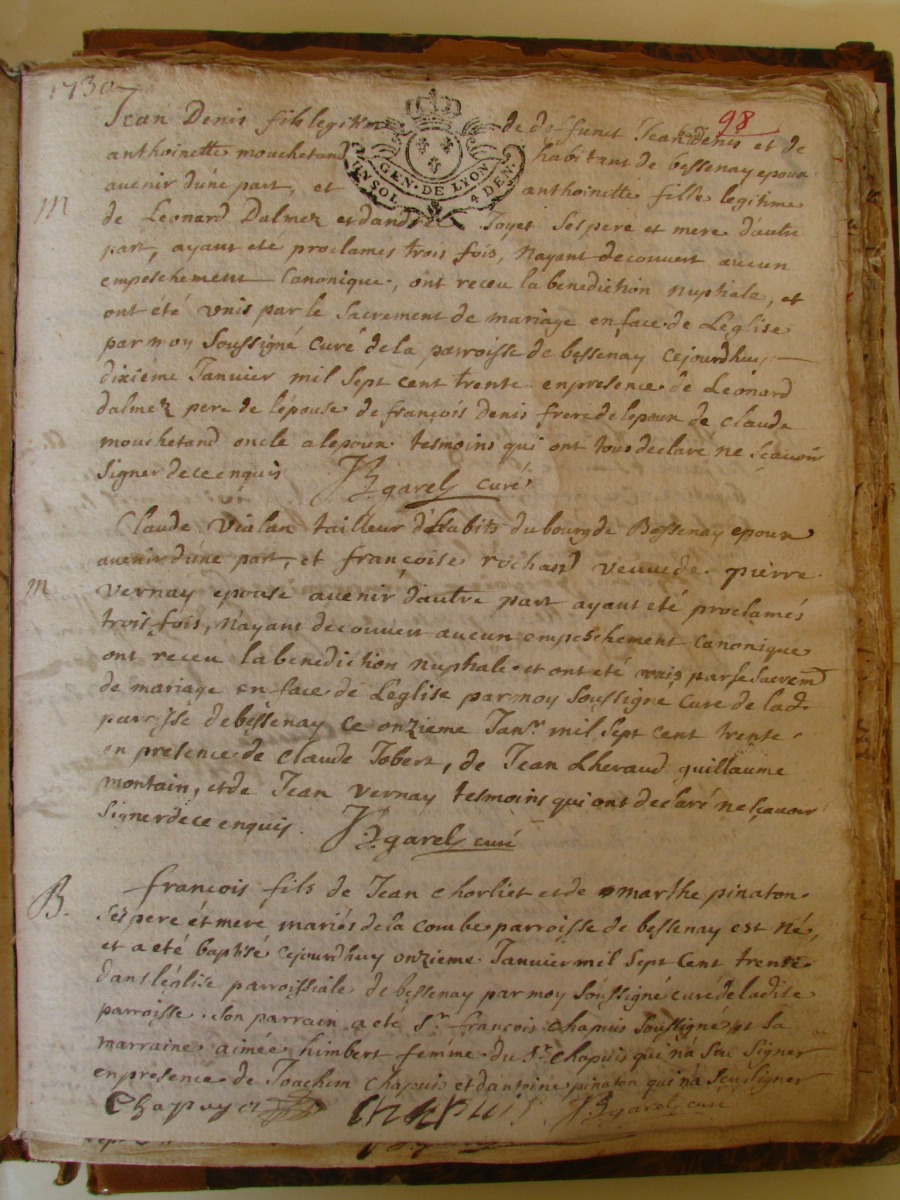 1730
98
Jean Denis fils legitime de deffunct Jean Denis et de
anthoinette mouchetand habitant de bessenay epoux
GEN. DE LYON
UN SOL 4 DEN.
avenir d'une part, et anthoinette fille legitime
M
de Leonard Dalmez et dandrée Joyet ses pere et mere d'autre
part, ayant eté proclamés trois fois, n'ayant decouvert aucun
empeschement Canonique, ont receu la benediction nuptiale, et
ont été unis par le sacrement de mariage en face de L'eglise
par moy soussigné curé de la parroisse de bessenay cejourdhuy
dixieme Janvier mil sept cent trente en presence de Leonard
dalmez pere de l'épouse de françois Denis frere de lepoux de claude
mouchetand oncle a lepoux tesmoins qui ont tous declaré ne scavoir
signer de ce enquis
garel curé
Claude vialan tailleur d'habits du bourg de Bessenay epoux
avenir d'une part, et françoise rochand veuve de pierre
M
vernay epouse avenir d'autre part ayant eté proclamés
trois fois, n'ayant decouvert aucun empeschement canonique
ont receu la benediction nuptiale et ont été unis par le sacremt
de mariage en face de L'eglise par moy soussigné curé de lad.
parroisse de bessenay ce onzieme Janr. mil sept cent trente
en presence de claude Jobert, de Jean Lheraud guillaume
montain, et de Jean vernay tesmoins qui ont declaré ne sçavoir
signer de ce enquis.
garel curé
B.
françois fils de Jean chorliet et de marthe pinaton
ses pere et mere mariés de la combe parroisse de bessenay est né,
et a eté baptisé cejourdhuy onzieme Janvier mil sept cent trente
dans l'église parroissiale de bessenay par moy soussigné curé de ladite
parroisse. son parrain a eté sr. françois chapuis soussigné et sa
marraine aimée himbert femme du sr. chapuis qui n'a seu signer
en presence de Joachim chapuis et d'antoine pinaton qui n'a seu signer
Chapuy
chapuis
garel curé